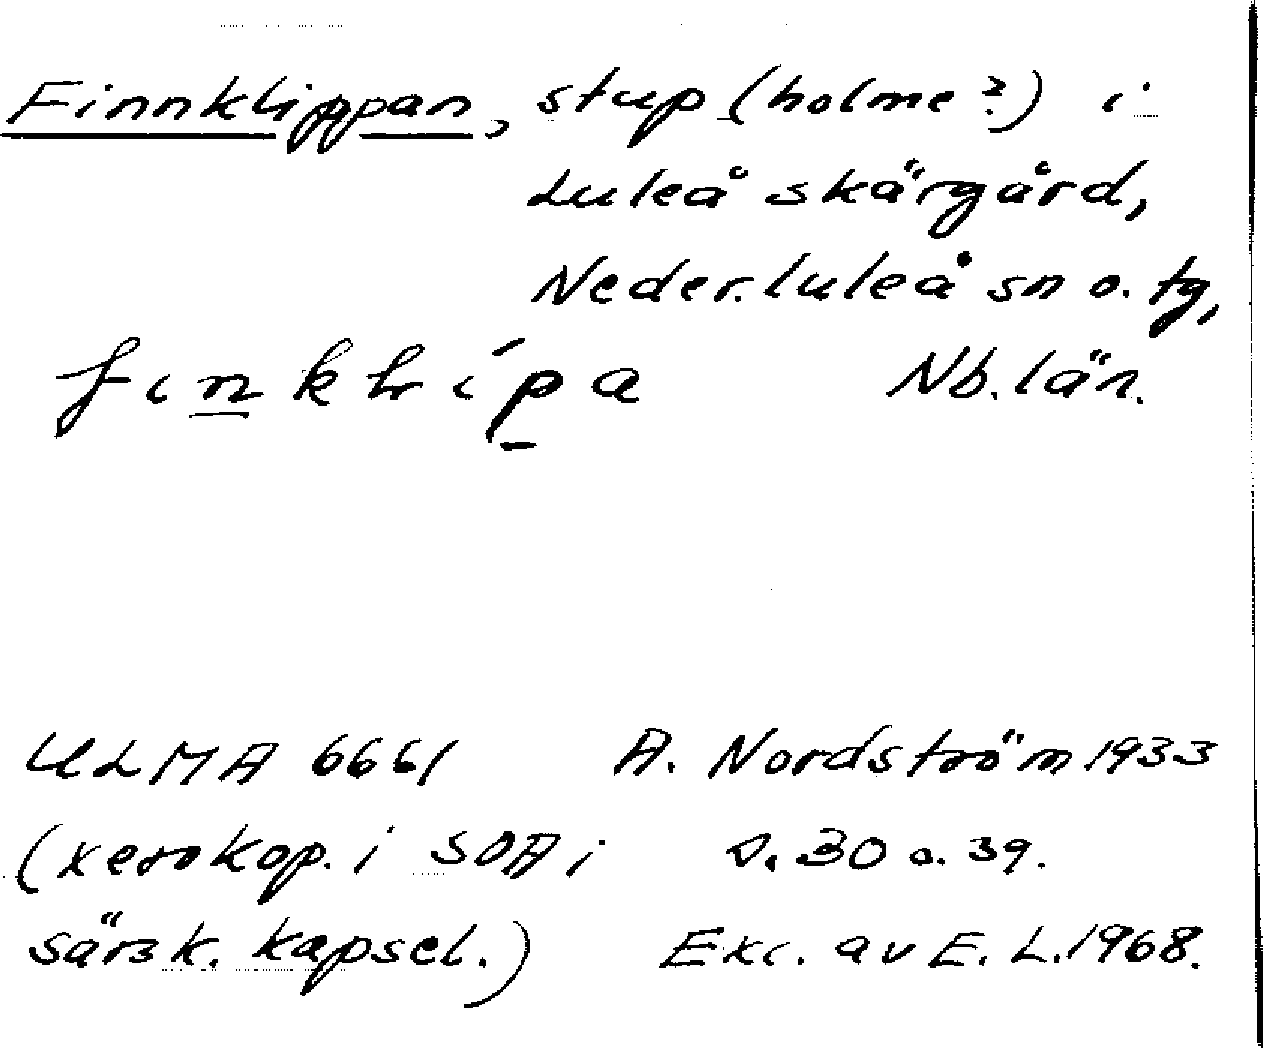 Finnklippan, stup (holme?) i
Luleå skärgård,
Nederluleå sn o. tg,
finklipa Nb. län.
ULMA 6661 A. Nordström 1933
(xerokop. i SOA i s. 30 o. 39.
särsk. kapsel.) Exc. av E. L. 1968.